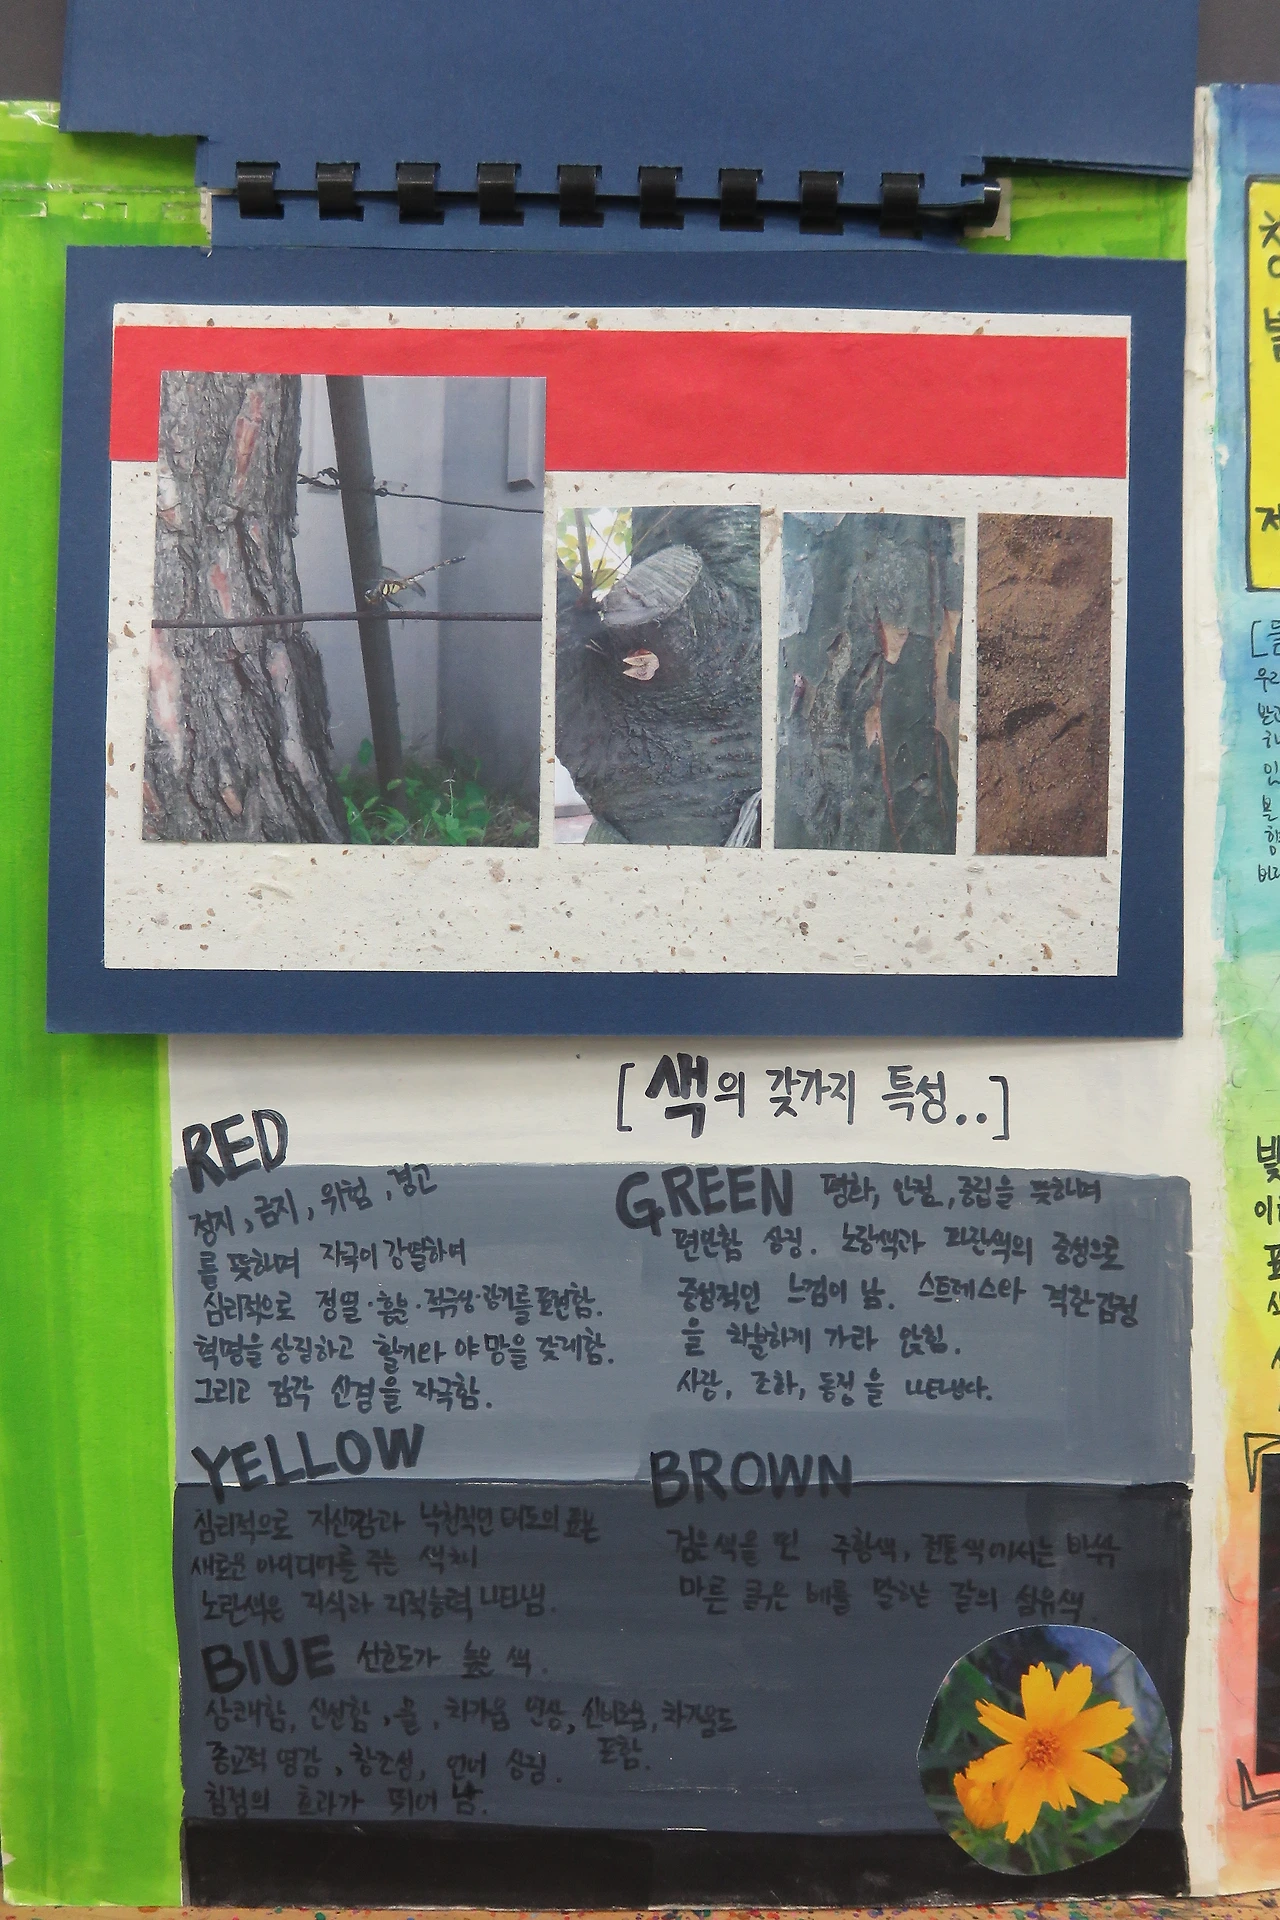 [색의 갖가지 특성..]
RED
정지, 금지, 위험, 경고
를 뜻하며 자극이 강렬하며
심리적으로 정열·흥분·적극성·광기를 표현함.
혁명을 상징하고 활기와 야망을 갖게함.
그리고 감각 신경을 자극함.
GREEN 평화, 안전, 중립을 뜻하며
편안함 상징. 노랑색과 파란색의 중성으로
중성적인 느낌이 남. 스트레스와 격한감정
을 차분하게 가라 앉힘.
사랑, 조화, 동정을 나타낸다.
YELLOW
심리적으로 자신감과 낙천적인 태도의 표본
새로운 아이디어를 주는 색채
노란색은 지식과 지적능력 나타냄.
BROWN
검은색을 띤 주황색, 전통색에서는 바싹
마른 굵은 베를 말하는 갈의 섬유색.
BlUE 선호도가 높은 색.
상쾌함, 신선함, 물, 차가움 연상, 신비로움, 차가움도
포함.
종교적 영감, 창조성, 언어 상징.
침정의 효과가 뛰어남.